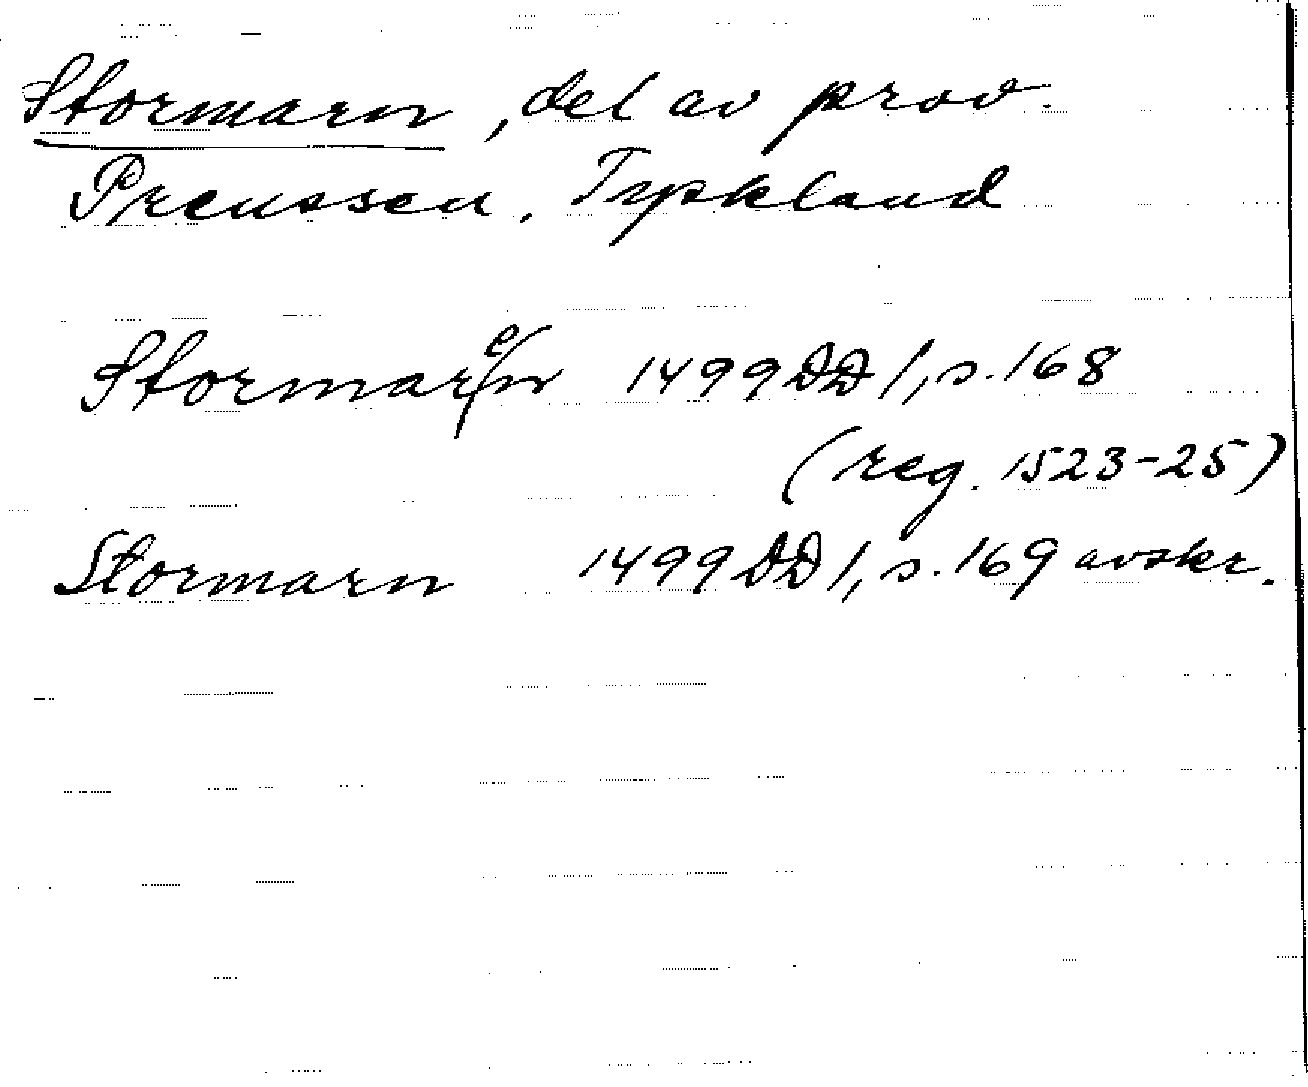 Stormarn, del av prov.
Preussen, Tyskland
Stormaren 1499 DD 1, s. 168
(reg. 1523-25)
Stormarn 1499 DD 1, s. 169 avskr.